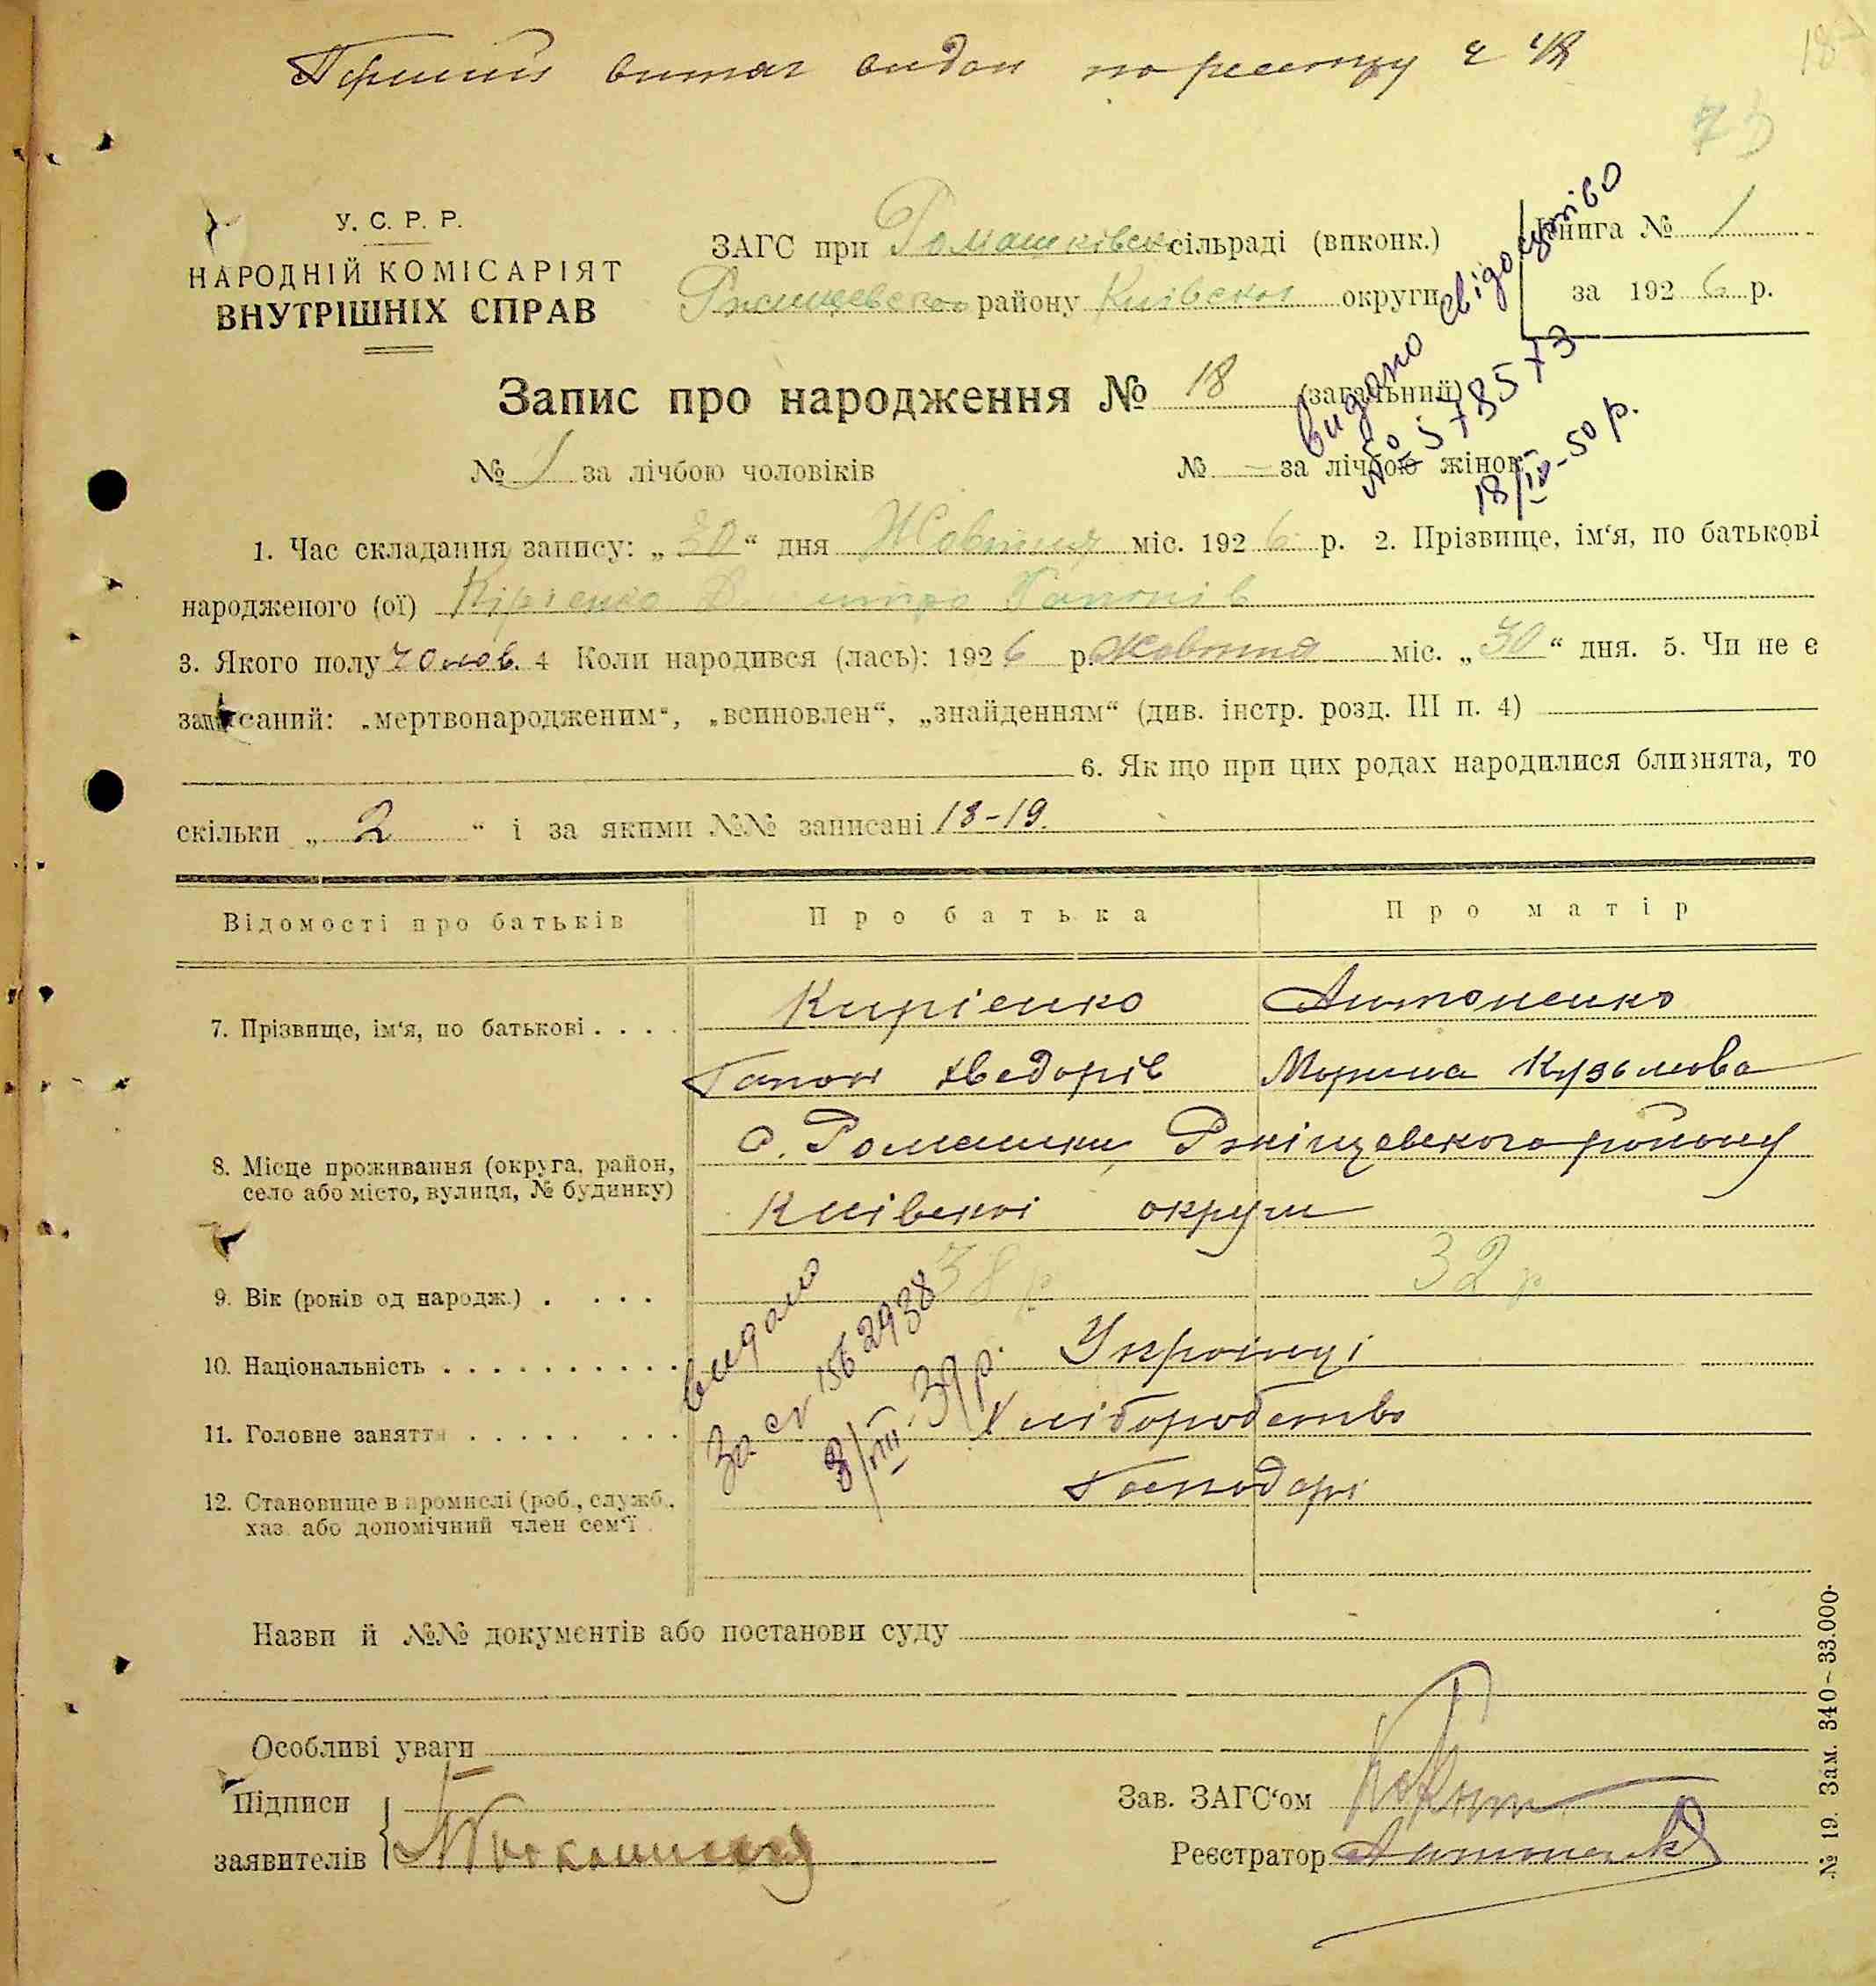 Перший витяг видан по реєстру ч 48
18
73
У. С. Р. Р.
НАРОДНІЙ КОМІСАРІЯТ
ВНУТРІШНІХ СПРАВ
ЗАГС при Ромашківск сільраді (виконк.)
району Київскої округи
Книга № 1
за 1926 р.
видано свідоцтво
№ 578573
18/IV-50 р.
Запис про народження № 18 (загальний)
№ 1 за лічбою чоловіків
№ — за лічбою жінок
1. Час складання запису: „ 30 “ дня Жовтня міс. 1926 р. 2. Прізвище, ім‘я, по батькові
народженого (ої) Кірієнко Дмитро Гапонів
3. Якого полу чолов. 4 Коли народився (лась): 1926 р. Жовтня міс. „ 30 “ дня. 5. Чи не є
записаний: „мертвонародженим“, „всиновлен“, „знайденням“ (див. інстр. розд. III п. 4)
6. Як що при цих родах народилися близнята, то
скільки „ 2 “ і за якими №№ записані 18-19.
Відомості про батьків Про батька Про матір
7. Прізвище, ім‘я, по батькові . . . . Кирієнко Антоненко
Гапон Хведорів Морина Кузьмова
8. Місце проживання (округа, район,
село або місто, вулиця, № будинку)
с. Ромашки Ржіщевского району
Київскої округи
9. Вік (років од народж.) . . . . 38 р 32 р
10. Національність . . . . . . . . . . Украінці
11. Головне заняття . . . . . . . . Хліборобство
12. Становище в промислі (роб., служб.,
хаз. або допомічний член сем‘ї .
Господарі
видано
За с№ 1562938
8/VIII.39 р.
Назви й №№ документів або постанови суду
Особливі уваги
Підписи
заявителів
Зав. ЗАГС‘ом
Реєстратор
№ 19. Зам. 340–33.000.